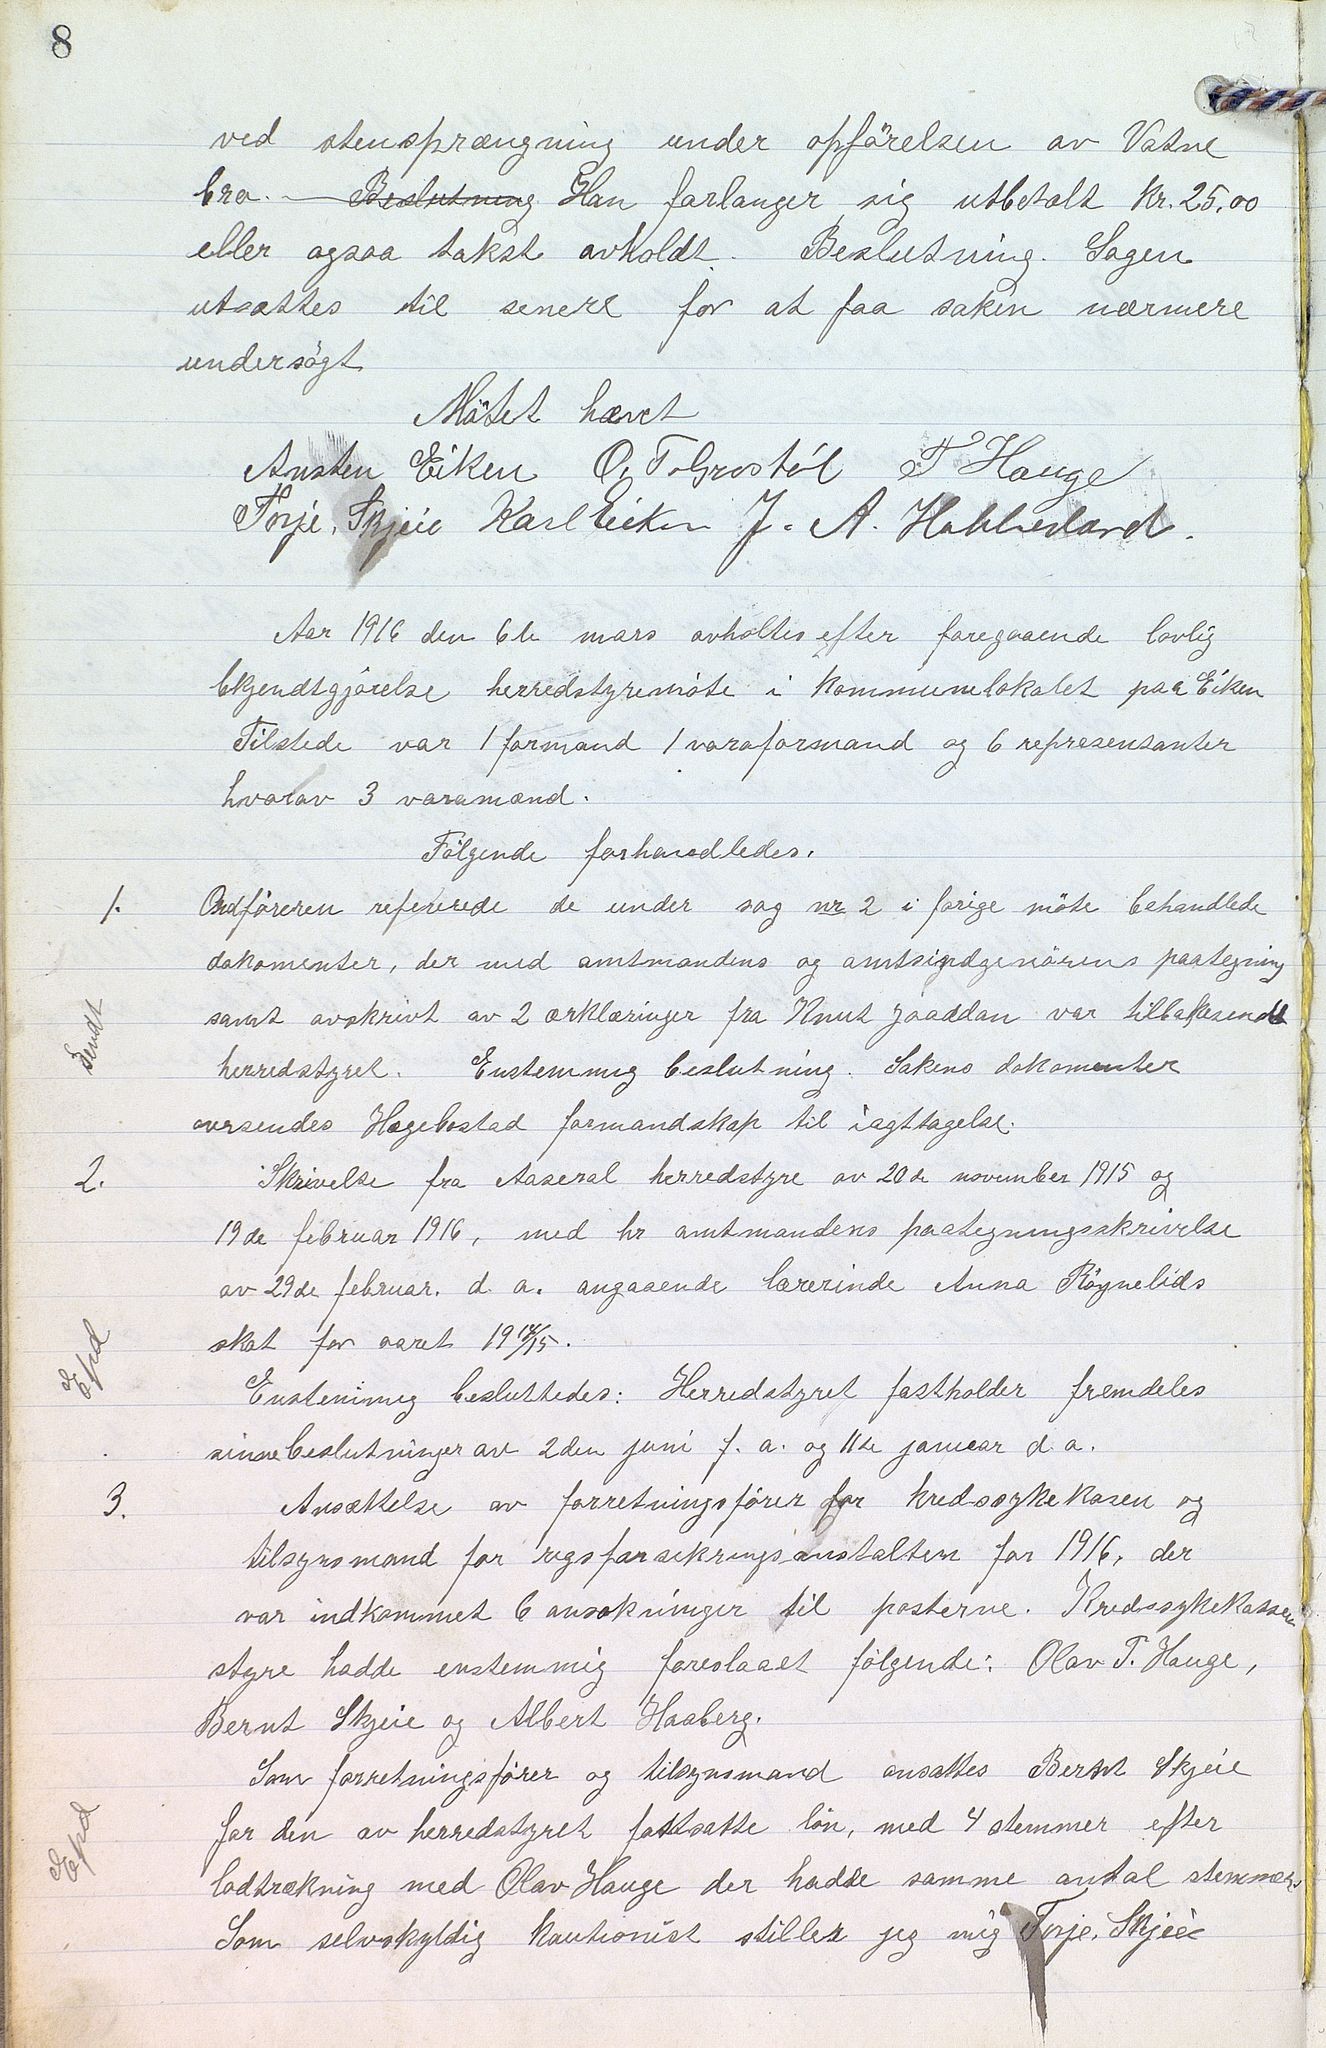 8
ved stensprængning under opförelsen av Vatne
bro. — Beslutning Han forlanger sig utbetalt kr. 25,00
eller ogsaa takst avholdt. Beslutning. Sagen
utsættes til senere for at faa saken nærmere
undersögt
Mötet hævet
Austen Eiken O. T. Grostöl T Hauge
Torje. Skjeie Karl Eiken J. A. Hobbesland.
Aar 1916 den 6te mars avholtes efter foregaaende lovlig
bkjendtgjörelse herredstyremöte i kommunelokalet paa Eiken
Tilstede var 1 formand 1 varaformand og 6 representanter
hvorav 3 varamænd.
Følgende forhandledes.
1. Ordföreren refererede de under sag nr 2 i forige möte behandlede
dokomenter, der med amtmandens og amtsingeniörens paategning
samt avskrivt av 2 ærklæringer fra Knut Jaaddan var tilbakesendt
Sendt
herredstyret. Enstemmig beslutning. Sakens dokomenter
oversendes Hægebostad formandskap til iagttagelse.
2. Skrivelse fra Aaseral herredstyre av 20de november 1915 og
19de februar 1916, med hr amtmandens paategningsskrivelse
av 29de februar. d. a. angaaende lærerinde Anna Rögnelids
skat for aaret 1914/15.
Expd
Enstemmig besluttedes: Herredstyret fastholder fremdeles
sinne beslutninger av 2den juni f. a. og 11te januar d. a.
3. Ansættelse av forretningsfører for kredssykekasen og
tilsynsmand for rigsforsikringsanstalten for 1916, der
var indkommet 6 ansøkninger til posterne. Kredssykekassens
styre hadde enstemmig foreslaaet følgende: Olav T. Hauge,
Bernt Skjeie og Albert Haaberg.
Som forretningsfører og tilsynsmand ansattes Bernt Skjeie
for den av herredstyret fattsatte løn, med 4 stemmer efter
Expd
lodtrækning med Olav Hauge der hadde samme antal stemmer
Som selvskyldig kautionist stiller jeg mig Torje. Skjeie